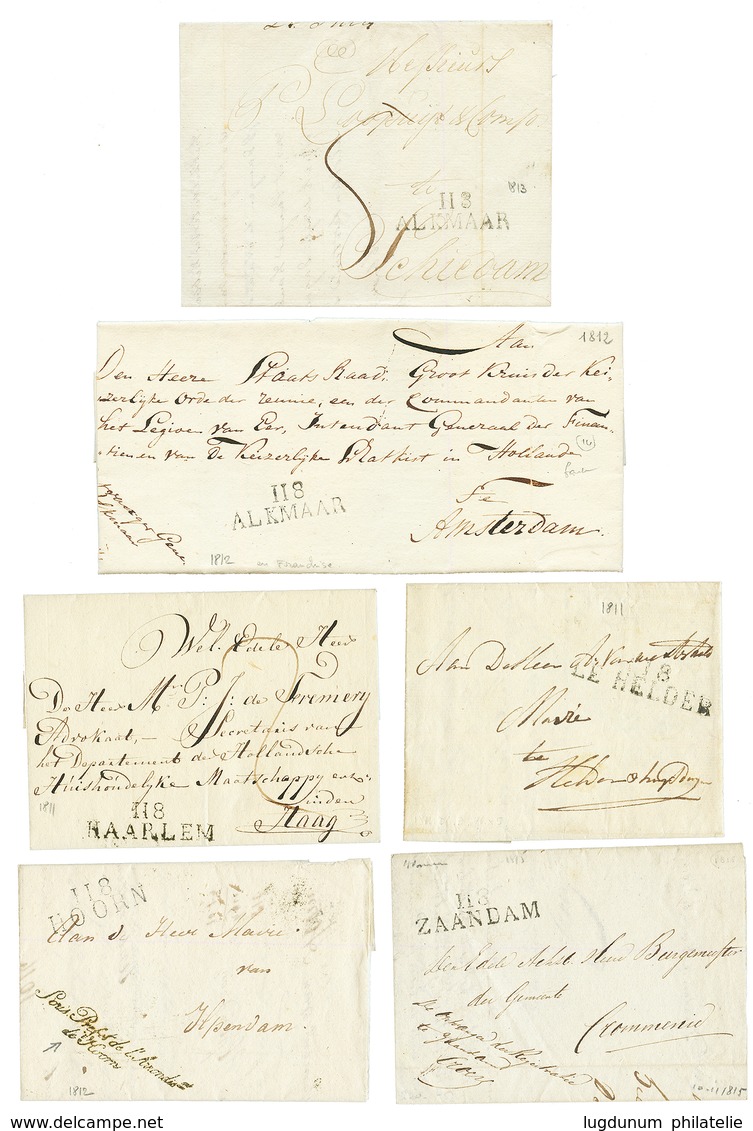 Messieurs
P. Loopuijt & Comp
te
1813
118
ALKMAAR
Schiedam
Aan
1812
Den Heere Staats Raad, Groot Kruis der Kei-
zerlijke Orde der reunie, een der Commandanten van
het Legioen van Eer, Intendant Generaal der Finan-
tien en van De Keizerlijke Schatkist in Holland
Te
118
ALKMAAR
Amsterdam
1812
en Franchise
Wel Edele Heer
De Heer Mr. P: J: de Fremery
Advokaat, - Secretaris van
het Departement der Hollandsche
Huishoudelijke Maatschappy
1811
118
HAARLEM
Haag
1811
118
LE HELDER
Maire
te
Helder
118
HOORN
Aan de Heer Maire
van
Ilpendam
Sous Préfet de l'Arrondis
de Hoorn
1812
118
ZAANDAM
Den Edele Achtb Heer Burgemeester
der Gemeente
Crommenie
1815
lugdunum philatelie